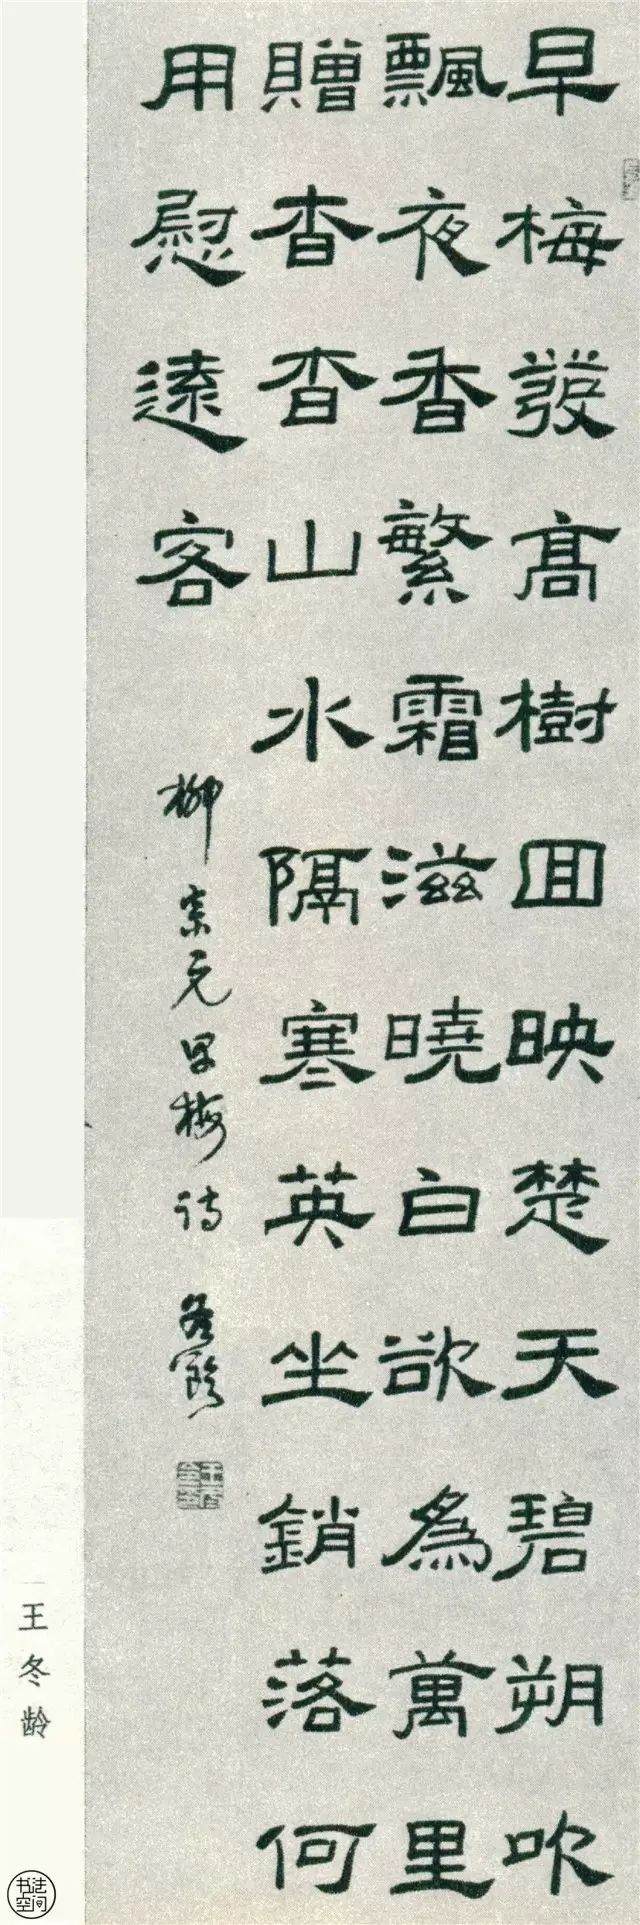 早梅發高樹回映楚天碧朔吹
飄夜香繁霜滋曉白欲為萬里
贈杳杳山水隔寒英坐銷落何
用慰遠客
柳宗元早梅诗 冬齡
王冬龄
书法空间